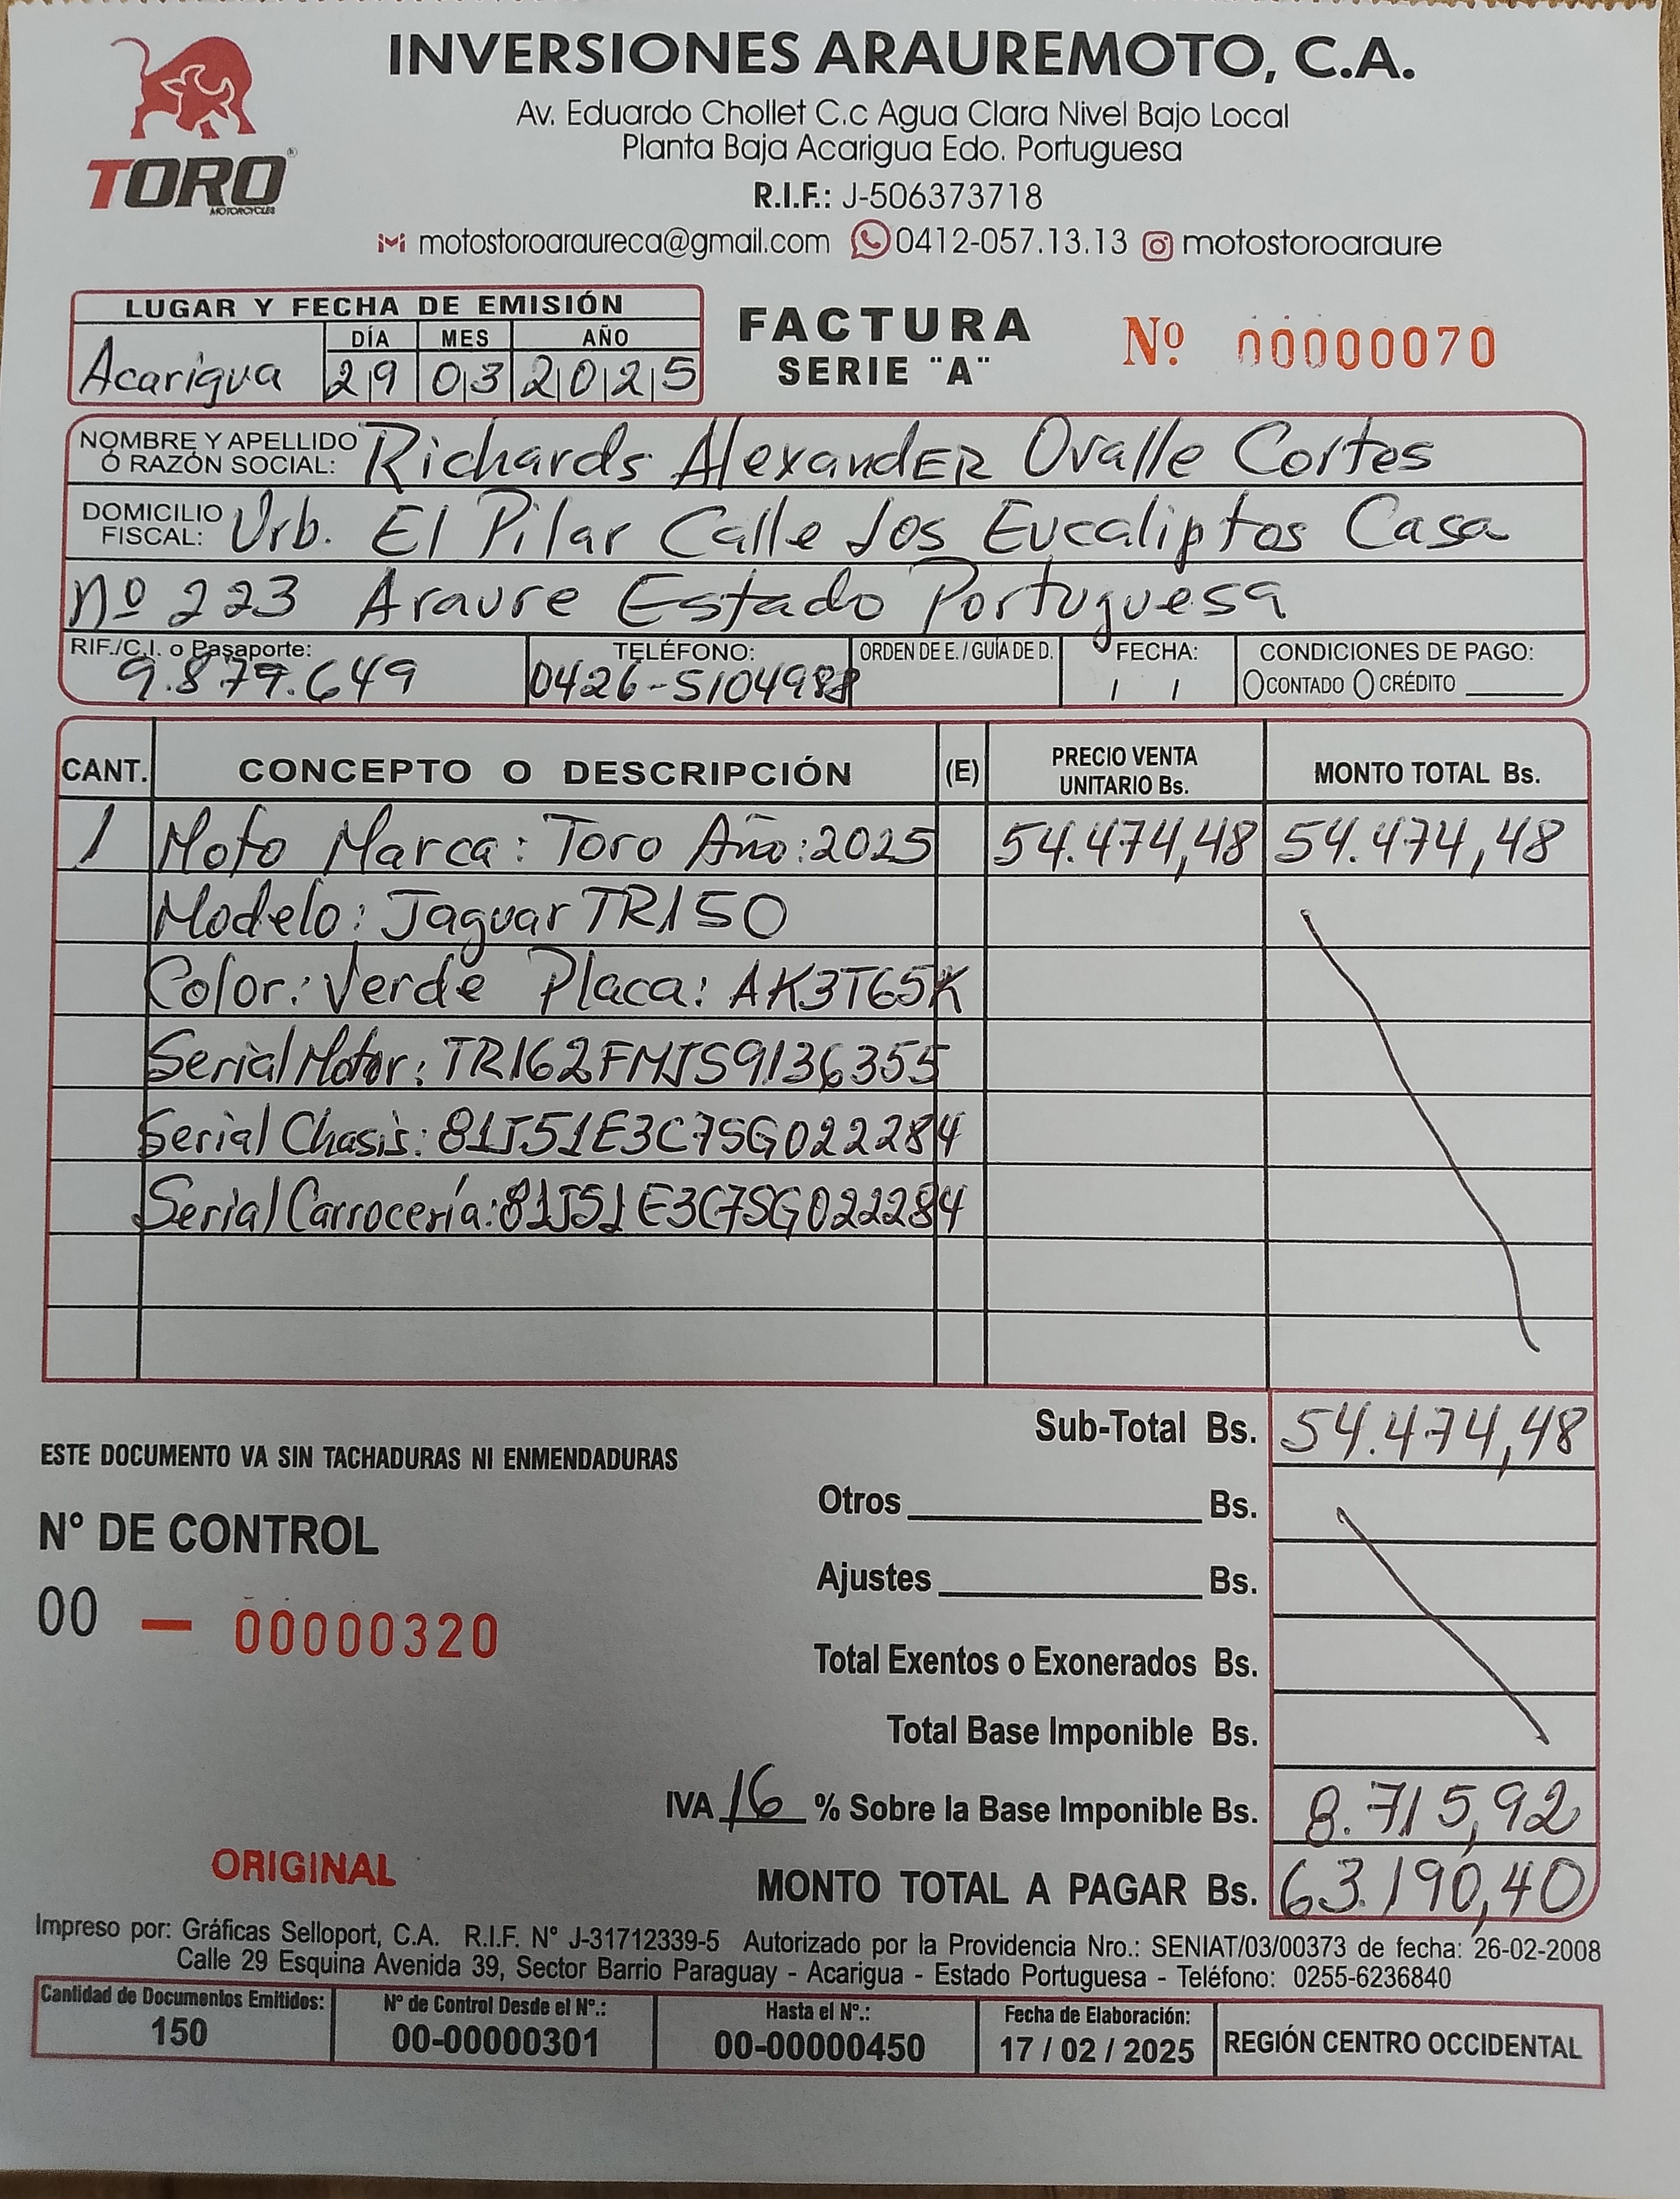 INVERSIONES ARAUREMOTO, C.A.
TORO®
MOTORCYCLES
Av. Eduardo Chollet C.c Agua Clara Nivel Bajo Local
Planta Baja Acarigua Edo. Portuguesa
R.I.F.: J-506373718
motostoroaraureca@gmail.com 0412-057.13.13 motostoroaraure
LUGAR Y FECHA DE EMISIÓN
DÍA MES AÑO
Acarigua 29 03 2025
FACTURA
SERIE "A"
Nº 00000070
NOMBRE Y APELLIDO
O RAZÓN SOCIAL: Richards AlexandER Ovalle Cortes
DOMICILIO
FISCAL: Urb. El Pilar Calle los Eucaliptos Casa
nº 223 Araure Estado Portuguesa
RIF./C.I. o Pasaporte: TELÉFONO: ORDEN DE E. / GUÍA DE D. FECHA: CONDICIONES DE PAGO:
9.879.649 / / CONTADO CRÉDITO
CANT. CONCEPTO O DESCRIPCIÓN (E) PRECIO VENTA UNITARIO Bs. MONTO TOTAL Bs.
1 Moto Marca: Toro Año:2025 54.474,48 54.474,48
Modelo: Jaguar TR150
Color: Verde Placa: AK3T65K
Serial Motor: TR162FMJS9136355
Serial Chasis: 81J51E3C7SG022284
Serial Carrocería: 81J51E3C7SG022284
Sub-Total Bs. 54.474,48
ESTE DOCUMENTO VA SIN TACHADURAS NI ENMENDADURAS
Otros Bs.
Nº DE CONTROL
Ajustes Bs.
00 - 00000320
Total Exentos o Exonerados Bs.
Total Base Imponible Bs.
IVA 16 % Sobre la Base Imponible Bs. 8.715,92
ORIGINAL
MONTO TOTAL A PAGAR Bs. 63.190,40
Impreso por: Gráficas Selloport, C.A. R.I.F. Nº J-31712339-5 Autorizado por la Providencia Nro.: SENIAT/03/00373 de fecha: 26-02-2008
Calle 29 Esquina Avenida 39, Sector Barrio Paraguay - Acarigua - Estado Portuguesa - Teléfono: 0255-6236840
Cantidad de Documentos Emitidos: Nº de Control Desde el Nº.: Hasta el Nº.: Fecha de Elaboración: REGIÓN CENTRO OCCIDENTAL
150 00-00000301 00-00000450 17 / 02 / 2025